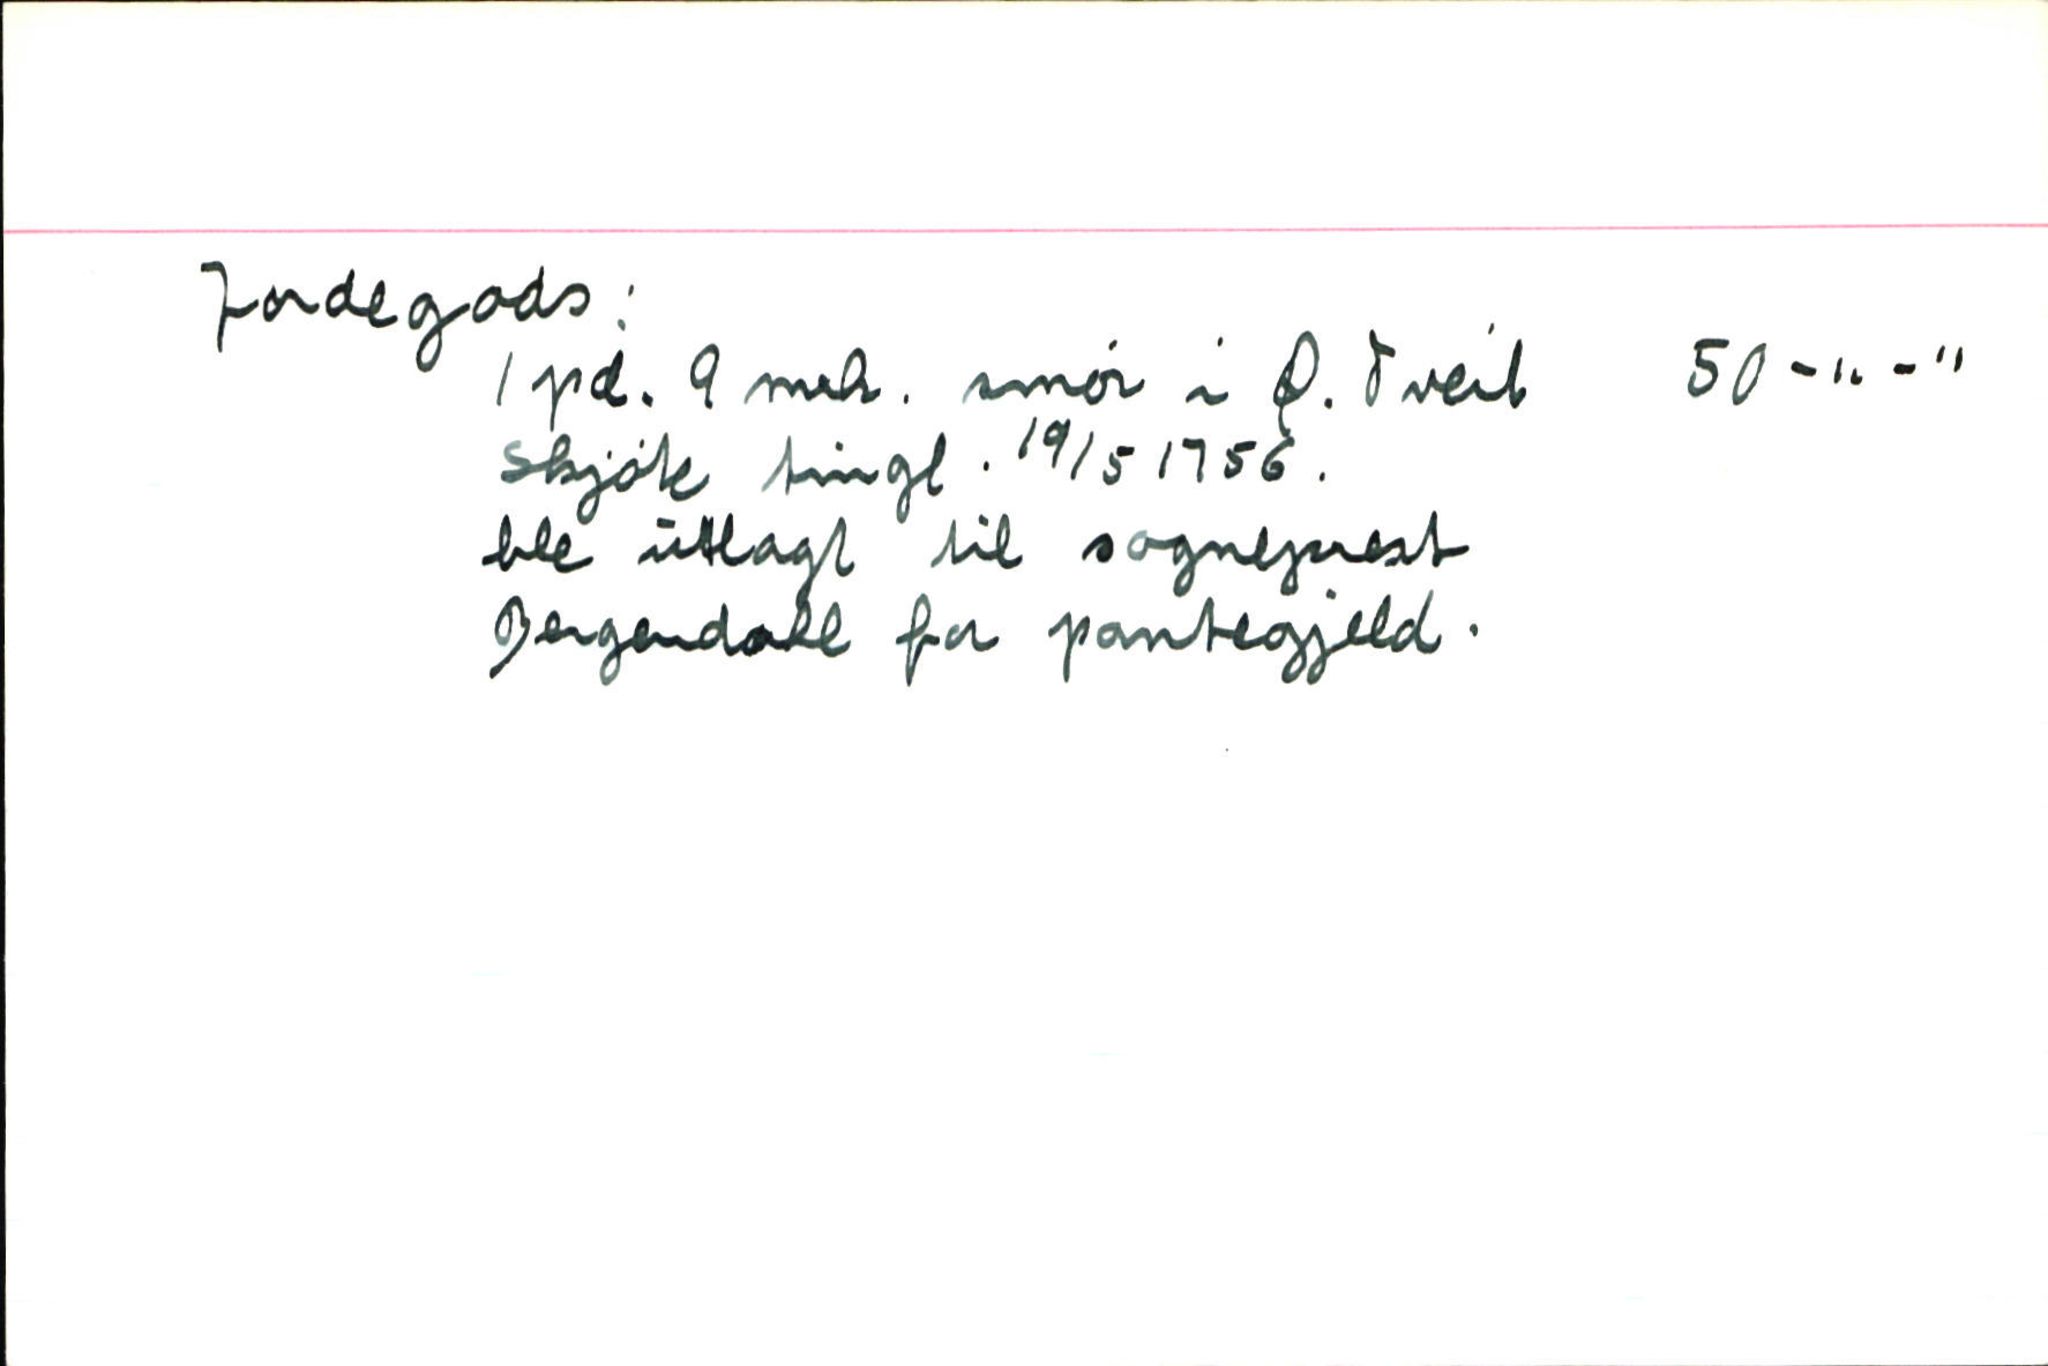 Jordegods:
1 pd. 9 mrk. smør i Ø. Tveit 50-"-"
skjøte tingl. 19/5 1756.
ble utlagt til sogneprest
Bergendahl for pantegjeld.